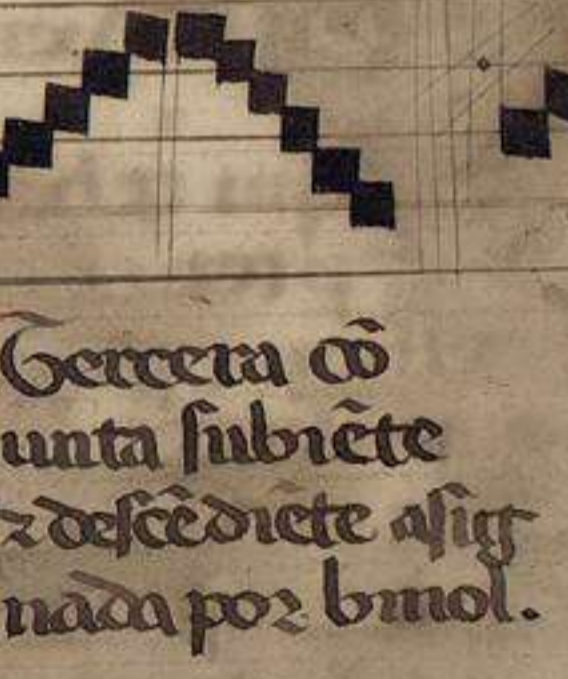 Tercera cõ
unta subiẽte
⁊ descẽdiẽte asig
nada por bmol.